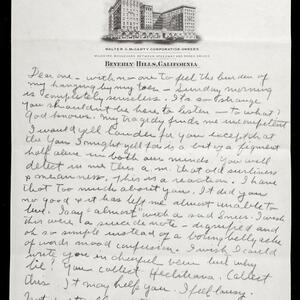 WALTER G. McCARTY CORPORATION-OWNERS
WILSHIRE BOULEVARD BETWEEN SPALDING AND RODEO DRIVES
BEVERLY HILLS, CALIFORNIA
Dear one - with no one to feel the burden of
my hanging by my toes - Sunday morning
is completely senseless. It's so strange
you shouldn't be here to listen - to what?
God knows. My tragedy finds me incompetent
I would yell louder for you except that
the you I might yell for is but a figment
half alive in both our minds. You well
detect in me this a.m. that old surliness
& meanness. This is a reaction. I have
that too much about you. It did you
no good & it has left me almost unable to
live. I say almost with a sad sneer. I wish
this were a suicide note - dignified and
oh so simple instead of a boring belly ache
of words and confusion. I wish I could
write you in cheerful vein but why
lie? You collect Hechtiana. Collect
this. It may help you. I feel lousy.